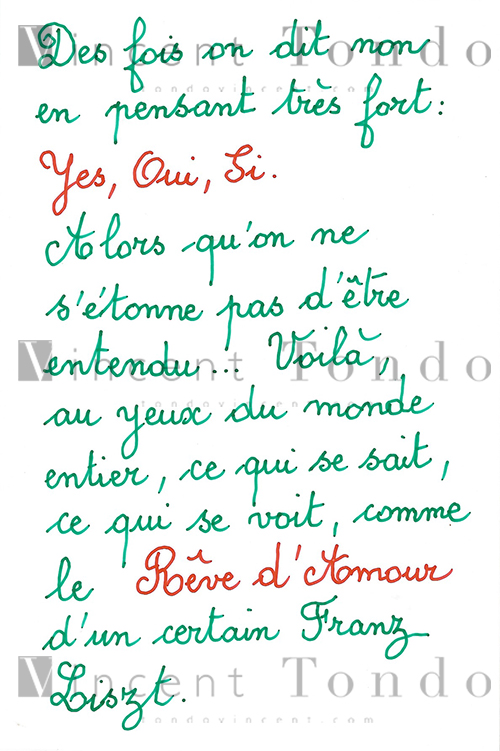 Des fois on dit non
en pensant très fort :
Yes, Oui, Si.
Alors qu'on ne
s'étonne pas d'être
entendu !.. Voilà,
au yeux du monde
entier, ce qui se sait,
ce qui se voit, comme
le Rêve d'Amour
d'un certain Franz
Liszt.
Vincent Tondo
tondovincent.com
Vincent Tondo
tondovincent.com
Vincent Tondo
tondovincent.com